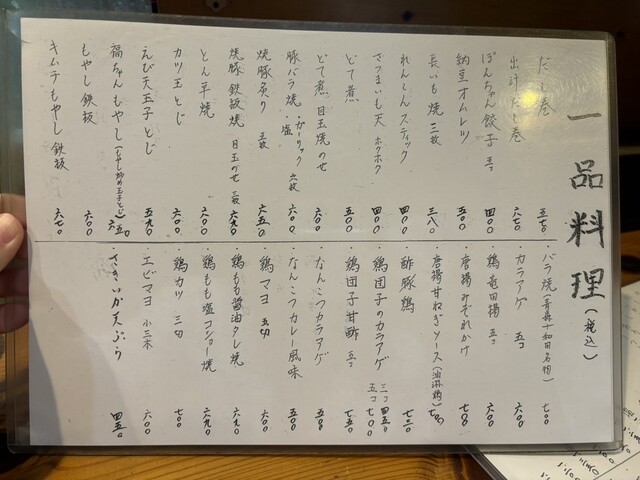 一品料理(税込)
だし巻 五五〇
出汁だし巻 六七〇
ぽんちゃん餃子 五コ 四〇〇
納豆オムレツ 五〇〇
長いも焼 三枚 三八〇
れんこんスティック 四〇〇
さつまいも天 ホクホク 四〇〇
どて煮 五〇〇
どて煮 目玉焼のせ 六〇〇
豚バラ焼 ・ガーリック ・塩 六枚 六〇〇
焼豚炙り 五枚 六五〇
焼豚鉄板焼 目玉のせ 三枚 六九〇
とん平焼 六〇〇
カツ玉とじ 六〇〇
えび天玉子とじ 五九〇
福ちゃんもやし(もやし炒め玉子とじ) 六五〇
もやし鉄板 六〇〇
キムチもやし鉄板 六七〇
・バラ焼(青森十和田名物) 七〇〇
・カラアゲ 五コ 六〇〇
・鶏竜田揚 五コ 六〇〇
・唐揚みぞれかけ 七〇〇
・唐揚甘ねぎソース(油淋鶏) 七〇〇
・酢豚鶏 七三〇
・鶏団子のカラアゲ 三コ 四五〇 五コ 七〇〇
・鶏団子甘酢 五コ 七五〇
・なんこつカラアゲ 五五〇
・なんこつカレー風味 五〇〇
・鶏マヨ 五切 六〇〇
・鶏もも醤油タレ焼 六九〇
・鶏もも塩コショー焼 六九〇
・鶏カツ 三切 七〇〇
・エビマヨ 小三本 六〇〇
・さきいか天ぷら 四五〇